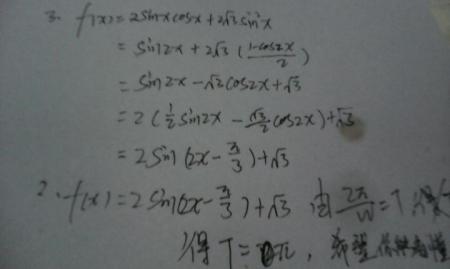 3. f(x)=2sinxcosx+2√3sin²x
=sin2x+2√3(\frac{1-cos2x}{2})
=sin2x-√2cos2x+√3
=2(\frac{1}{2}sin2x-\frac{√3}{2}cos2x)+√3
=2sin(2x-\frac{π}{3})+√3
2. f(x)=2sin(2x-\frac{π}{3})+√3 由\frac{2π}{W}=T得
得T=π，希望你能看懂